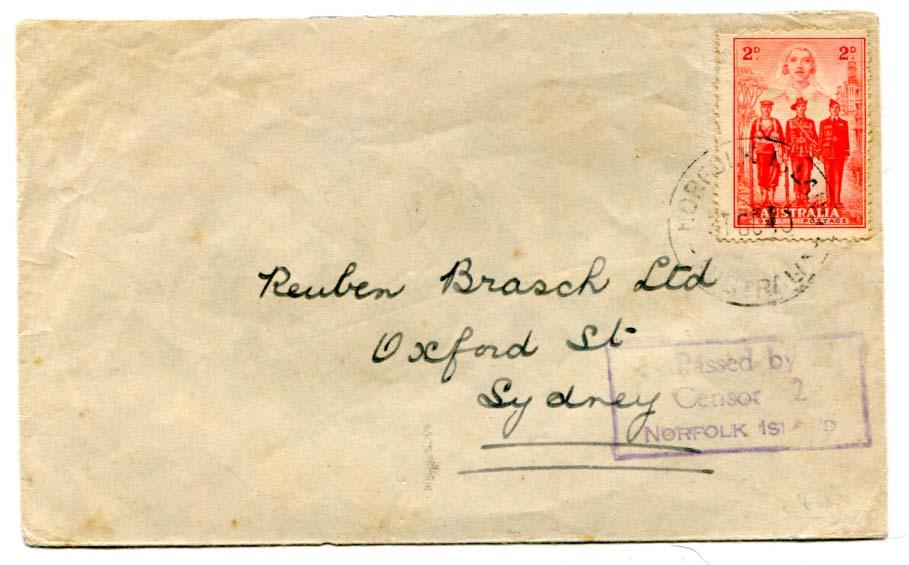 2D 2D
AUSTRALIA
1940 POSTAGE
NORFOLK ISLAND
OC 40
AUSTRALIA
Reuben Brasch Ltd
Oxford St
Sydney
Passed by
Censor 2
NORFOLK ISLAND